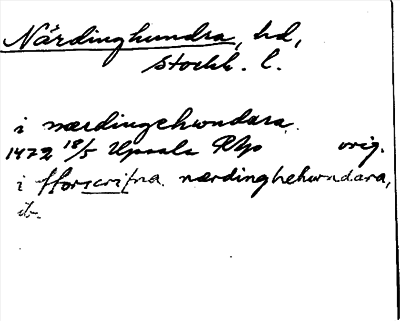 Närdinghundra, hd,
Stockh. l.
i nærdingehwndara
1472 18/5 Upsala RAp orig.
i fforscrifna nærdinghehwndara,
ib.